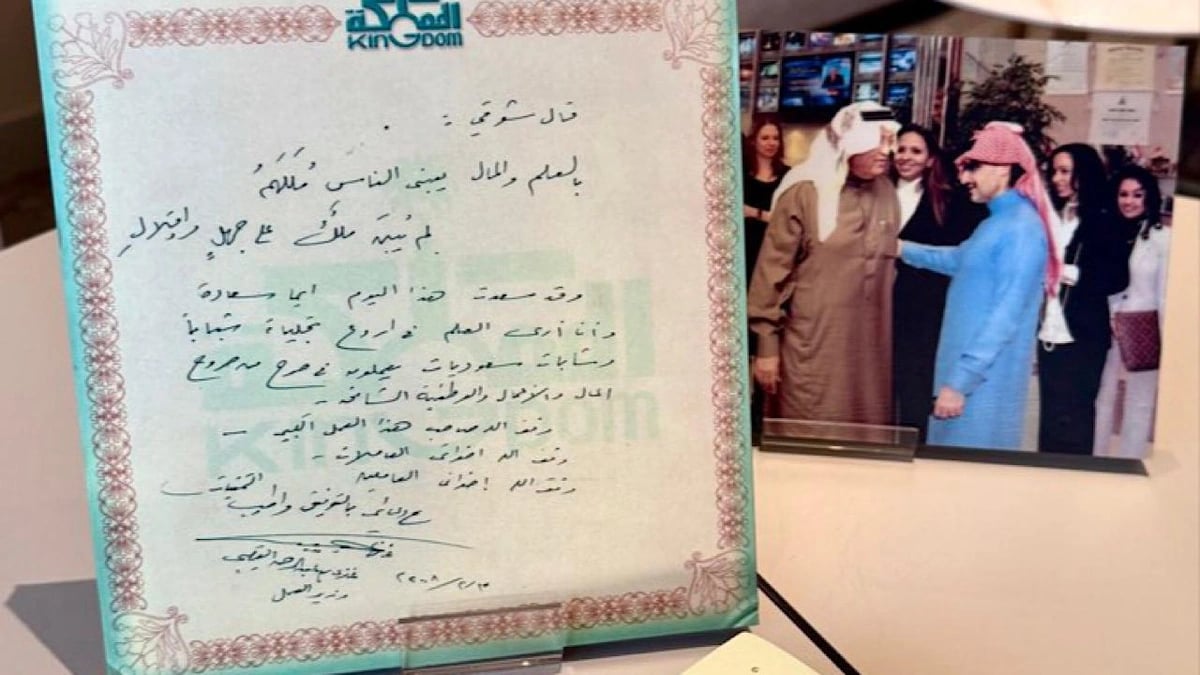 المملكة
KINGDOM
قال شوقي :
بالعلم والمال يبني الناسُ مُلكَهُمُ
لم يُبْنَ ملكٌ على جهلٍ وإقلالِ
وقد سعدت هذا اليوم ايما سعادة
وأنا أرى العلم في اروع تجلياته شباباً
وشابات سعوديات يعملون في صرح من صروح
المال والأعمال والوطنية الشامخة -
وفق الله صاحب هذا العمل الكبير -
وفق الله اخواتي العاملات -
وفق الله إخواني العاملين
مع دعائي بالتوفيق واطيب التمنيات
غازي بن عبدالرحمن القصيبي
وزير العمل
المملكة
KINGDOM